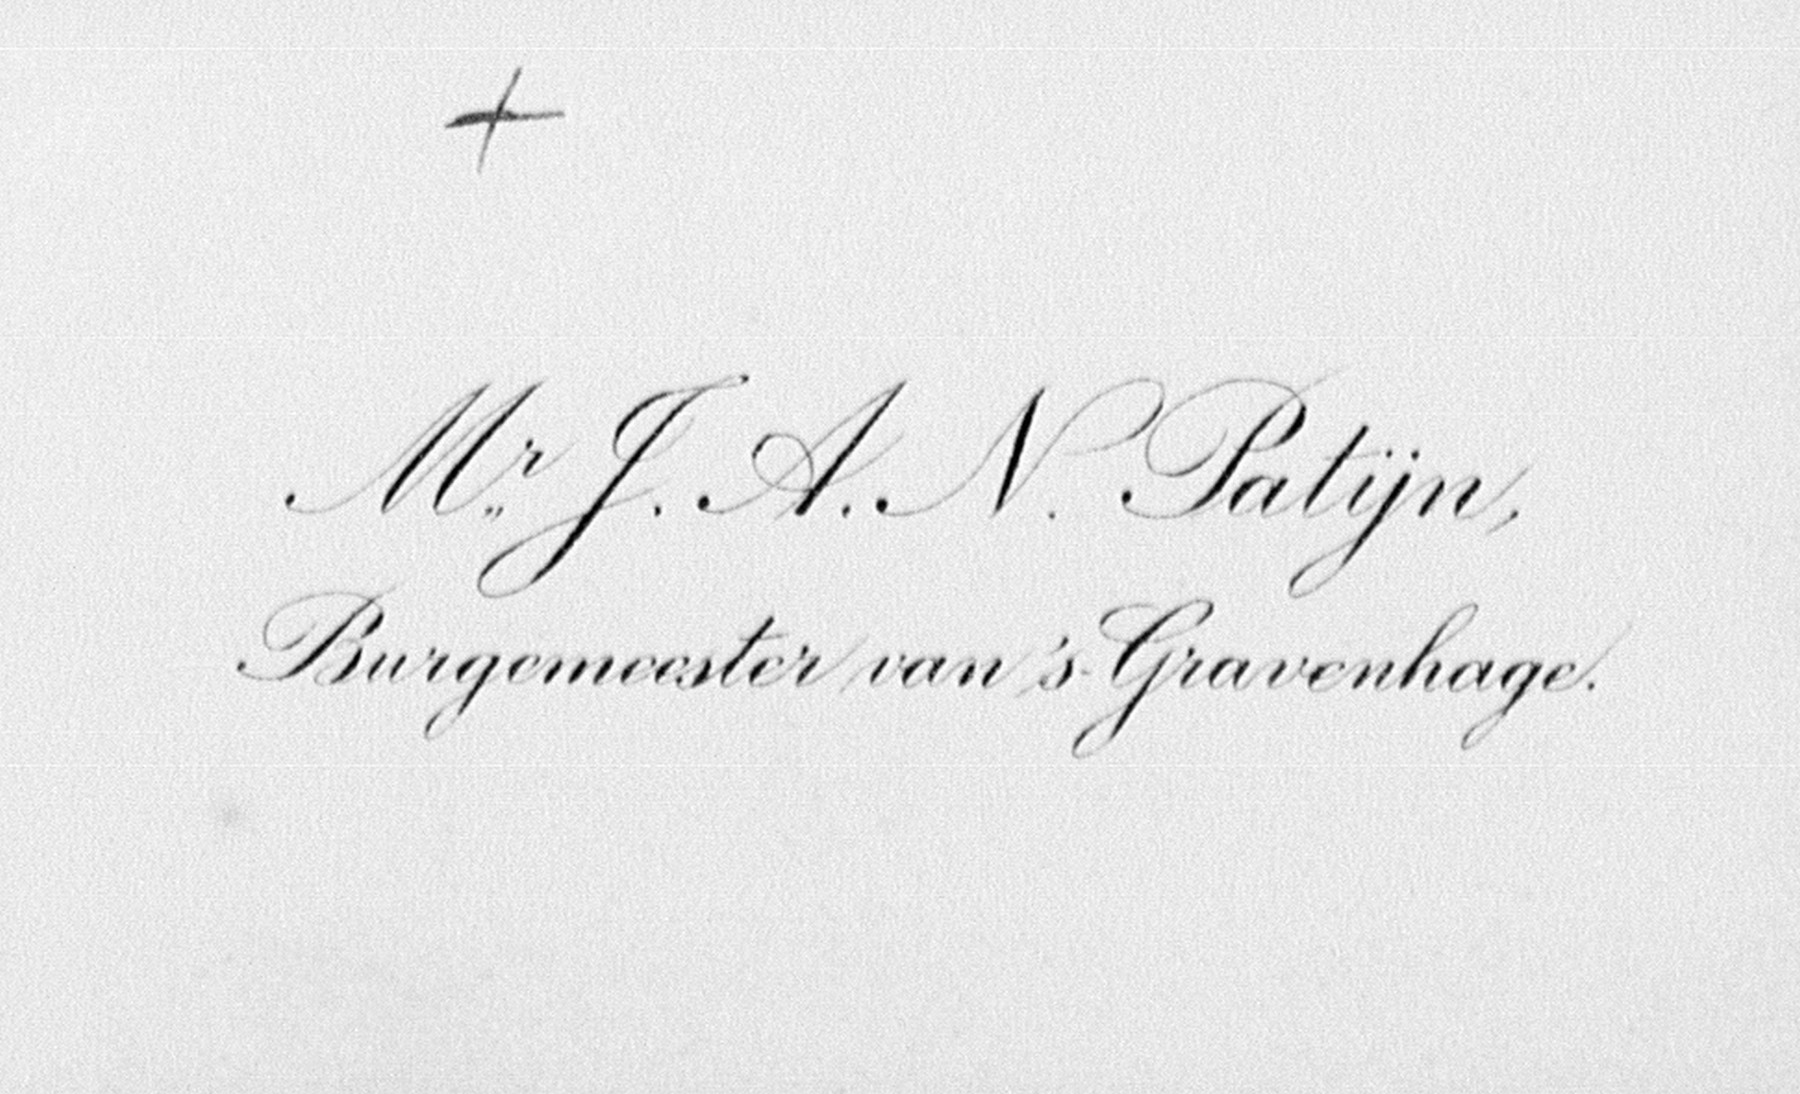 Mr. J. A. N. Patijn,
Burgemeester van 's-Gravenhage.